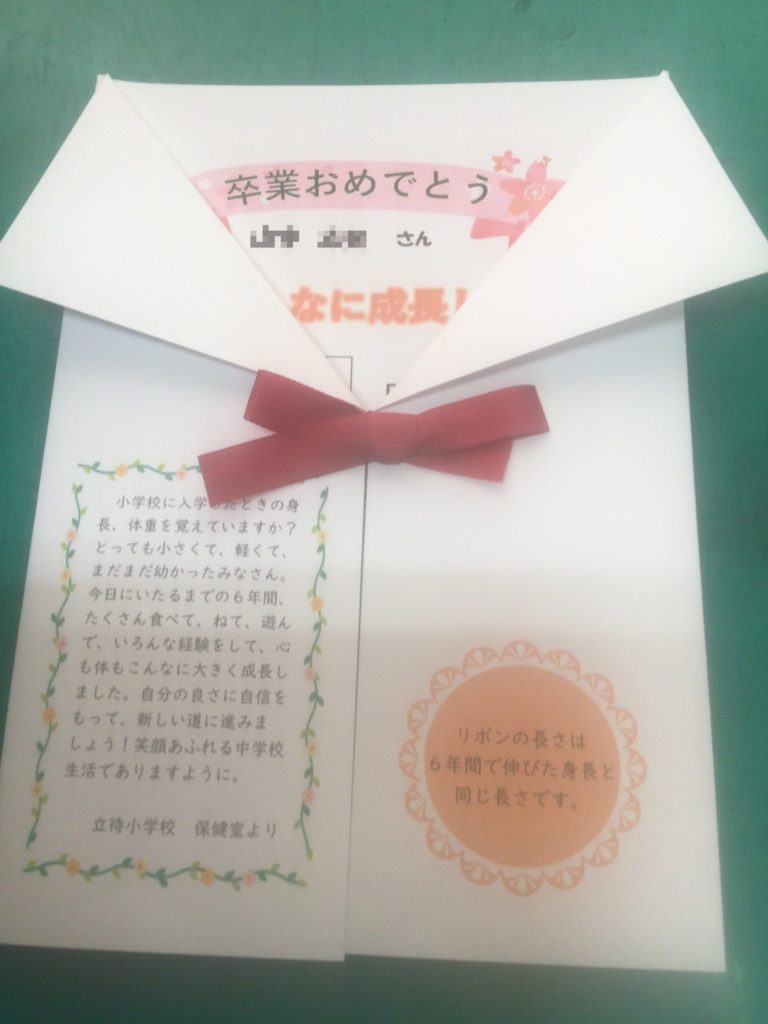 卒業おめでとう
さん
なに成長
小学校に入学したときの身
長、体重を覚えていますか？
とっても小さくて、軽くて、
まだまだ幼かったみなさん。
今日にいたるまでの６年間、
たくさん食べて、ねて、遊ん
で、いろんな経験をして、心
も体もこんなに大きく成長し
ました。自分の良さに自信を
もって、新しい道に進みま
しょう！笑顔あふれる中学校
生活でありますように。
立待小学校　保健室より
リボンの長さは
６年間で伸びた身長と
同じ長さです。